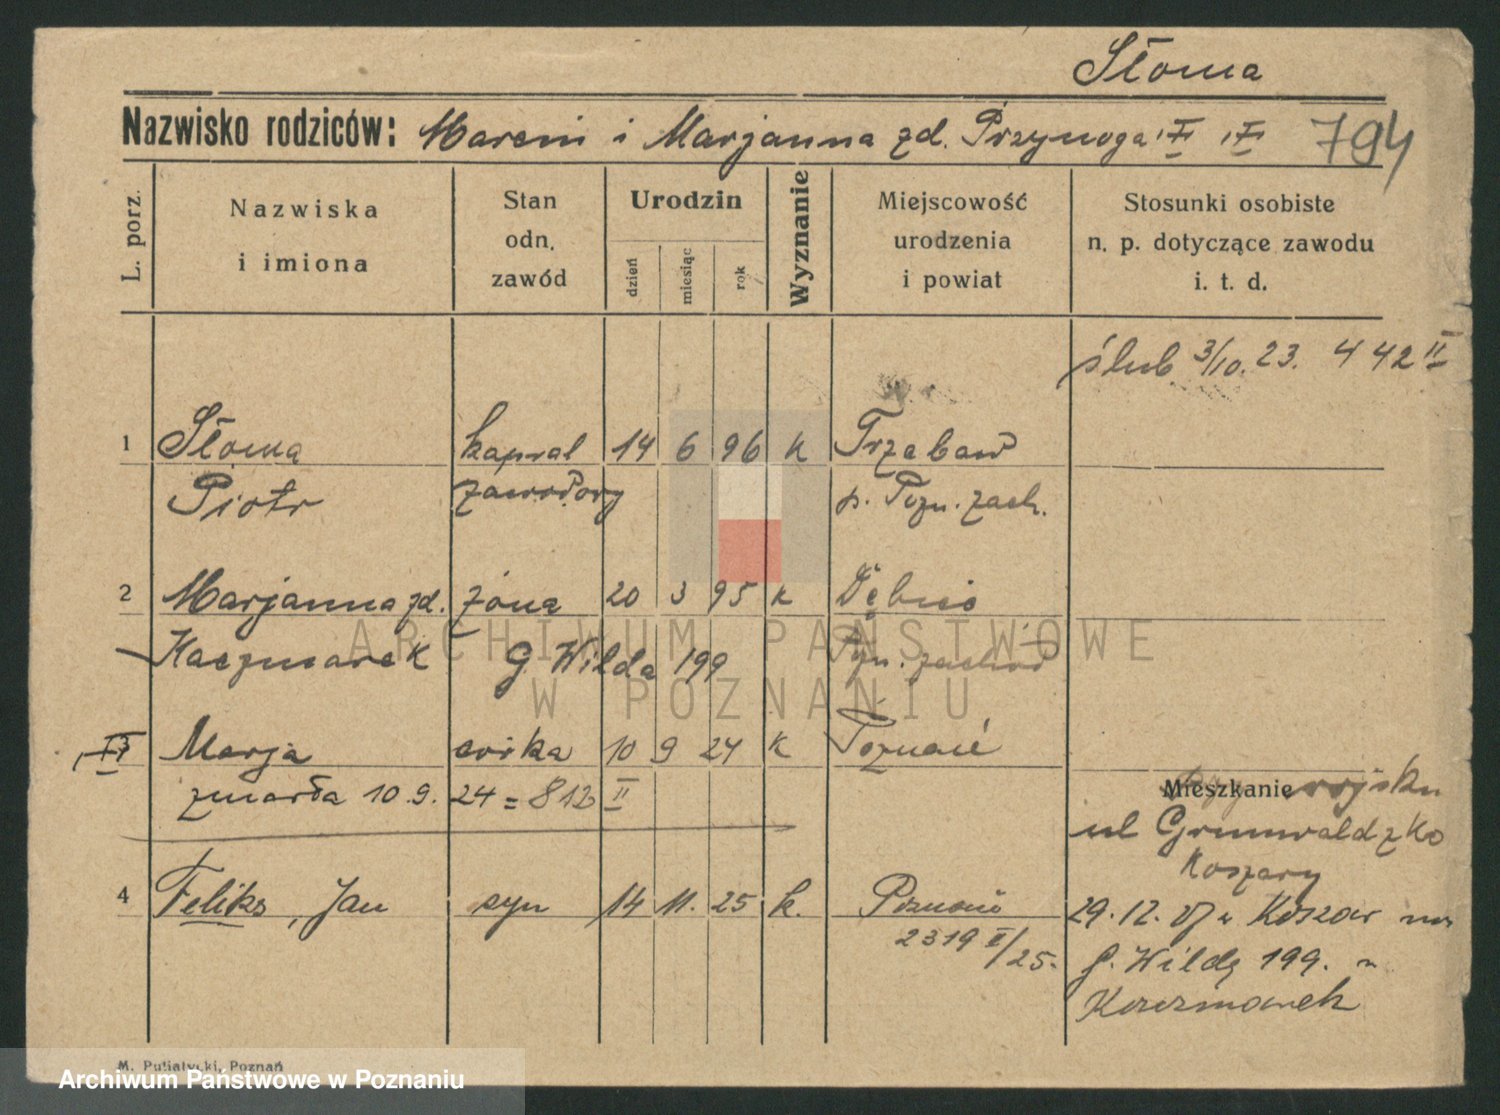 Słoma
Nazwisko rodziców: Marcin i Marjanna zd. Przynoga 794
L. porz.
Nazwiska i imiona
Stan odn. zawód
Urodzin
dzień
miesiąc
rok
Wyznanie
Miejscowość urodzenia i powiat
Stosunki osobiste n. p. dotyczące zawodu i. t. d.
ślub 3/10. 23. 442 II
1 Słoma kapral 14 6 96 k Trzebaw
Piotr zawodowy p. Pozn. zach.
2 Marjanna zd. żona 20 3 95 k Dębiec
Kaczmarek G. Wilda 199 Pozn. zachod
3 Marja córka 10 9 24 k Poznań
zmarła 10.9. 24 = 812 II
Mieszkanie
przy wojsku
ul Grunwaldzko
Koszary
4 Feliks, Jan syn 14 11. 25 k. Poznań
2319 II/25.
29.12. Koszar
G. Wildę 199.
Kaczmarek
M. Putiatycki, Poznań
ARCHIWUM PAŃSTWOWE
W POZNANIU
Archiwum Państwowe w Poznaniu